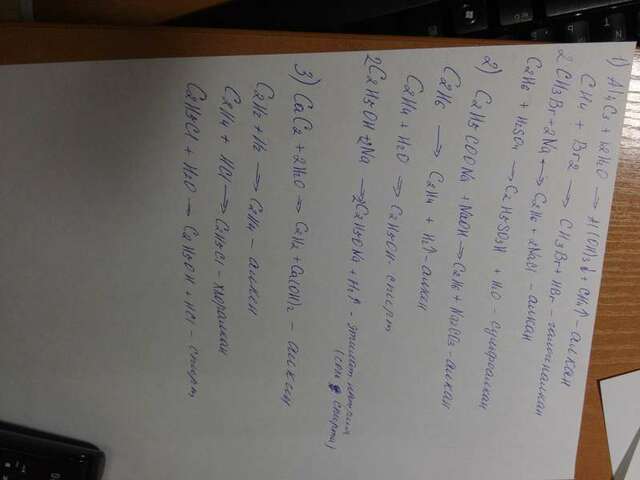 1) Al4C3 + 12H2O → Al(OH)3↓ + CH4↑ - алкан
CH4 + Br2 → CH3Br + HBr - галогеналкан
2CH3Br + 2Na → C2H6 + 2NaBr - алкан
C2H6 + H2SO4 → C2H5SO3H + H2O - сульфоалкан
2) C2H5COONa + NaOH → C2H6 + Na2CO3 - алкан
C2H6 → C2H4 + H2↑ - алкен
C2H4 + H2O → C2H5OH - спирт
2C2H5OH + 2Na → 2C2H5ONa + H2↑ - этилат натрия
(соли спирта)
3) CaC2 + 2H2O → C2H2 + Ca(OH)2 - алкин
C2H2 + H2 → C2H4 - алкен
C2H4 + HCl → C2H5Cl - хлоралкан
C2H5Cl + H2O → C2H5OH + HCl - спирт